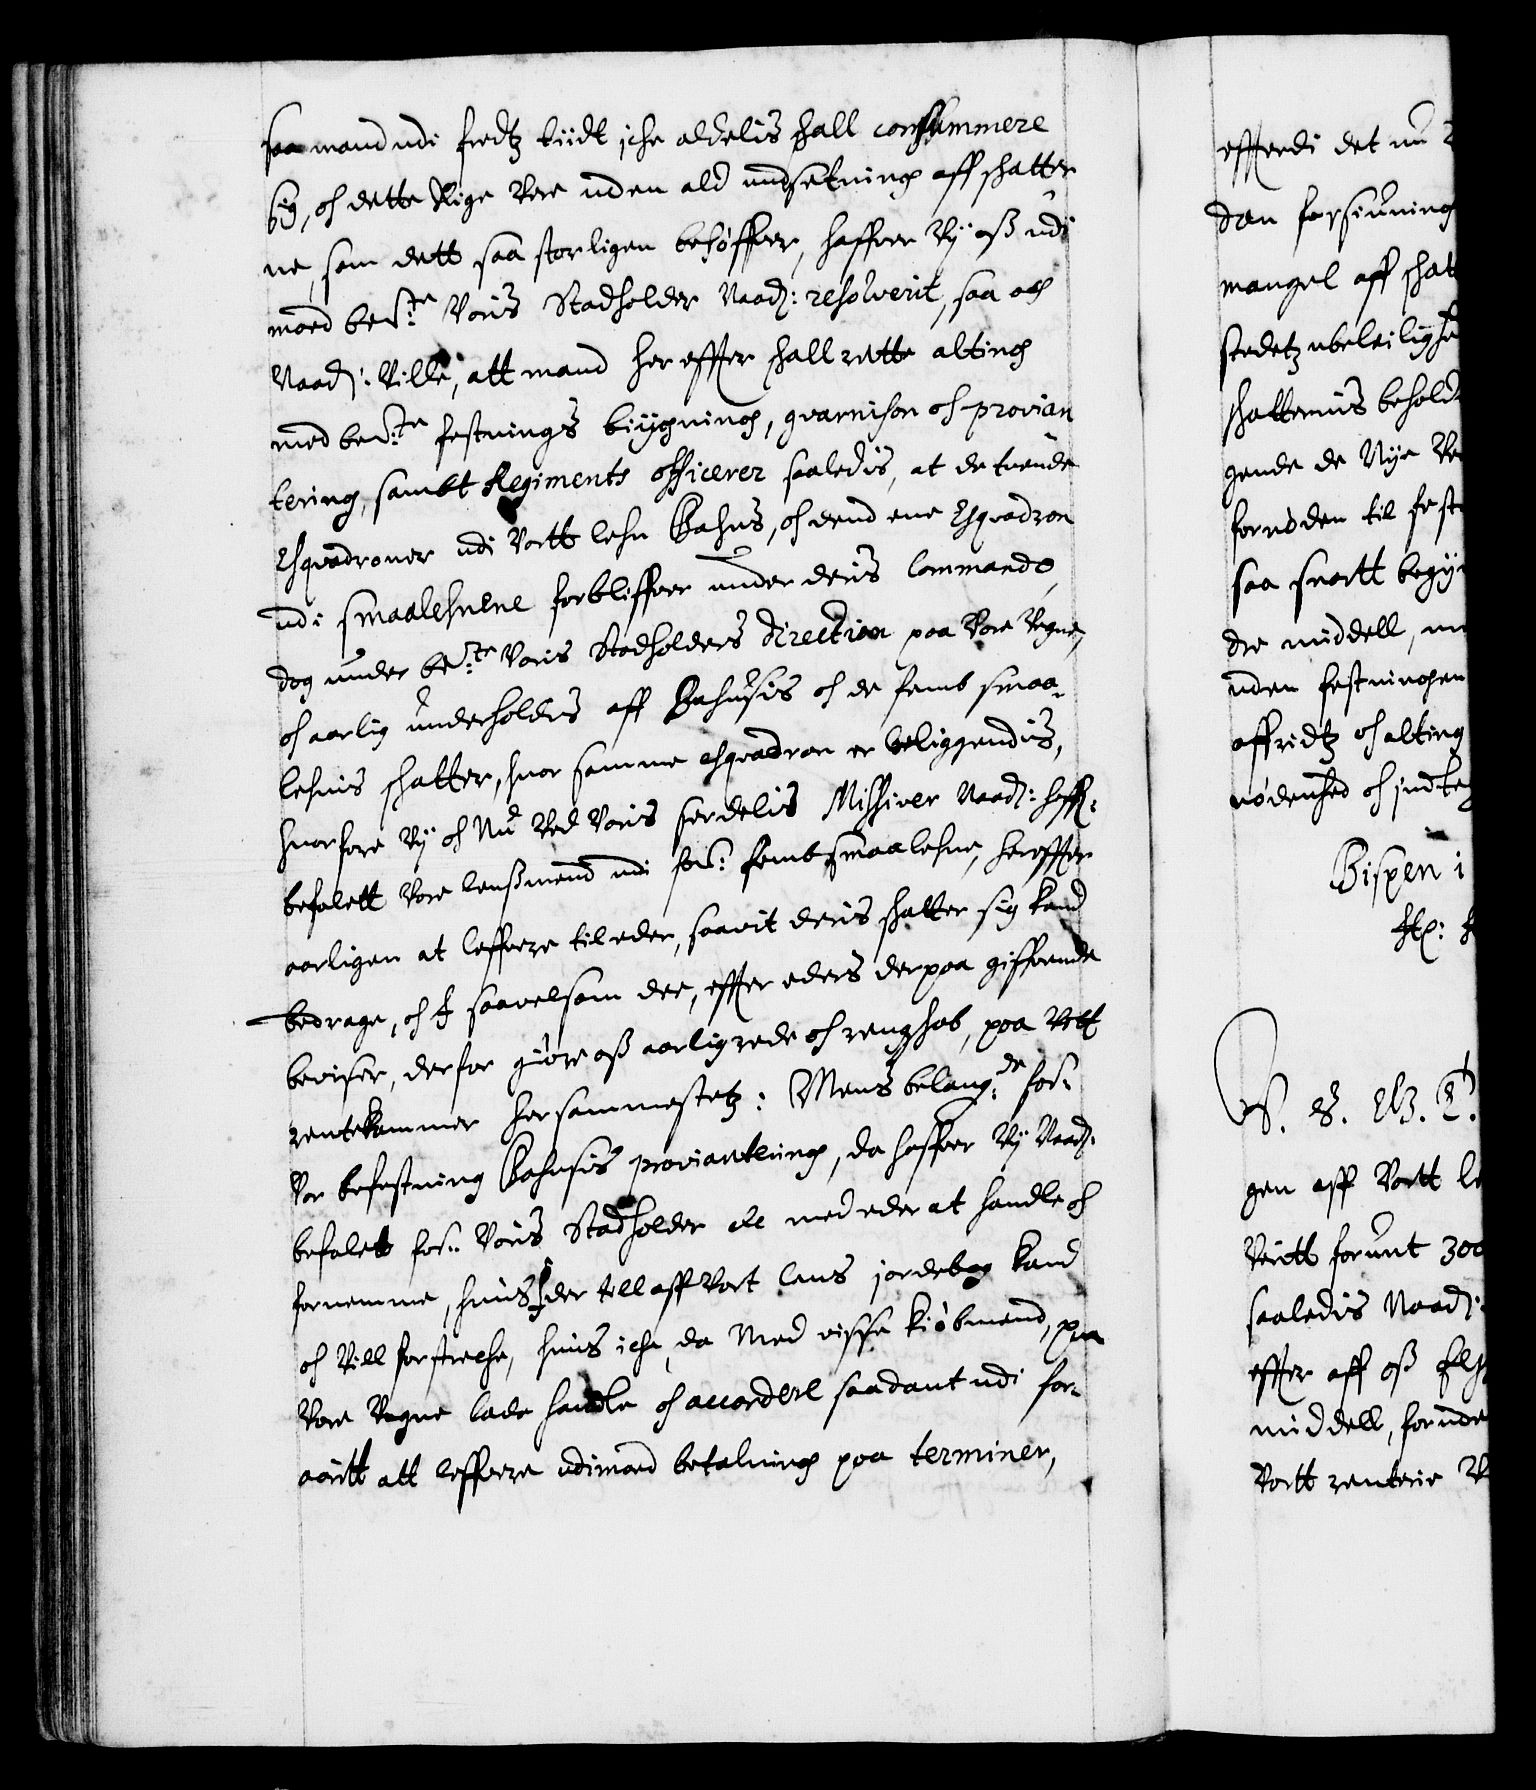 saa mand udi fredtz tiidt iche aldelis shall consummere
sig, och dette Rige Vere uden ald undsetning aff shatter
ne, som dett saa storligen behøffver, haffver Vy oss udi
moed be:te Voris Stadholder Naad: resolverit, saa och
Naad: Ville, att mand her effter shall rette alting
med be:te festnings biygning, guarnison och provian
tering, sambt Regiments officerer saaledis, at de tvende
Esquadroner udi Vortt lehn Bahus, och dend ene Esquadron
udi smaalehnene forbliffver under deris Commando,
dog under be:te Voris Stadholders direction paa Vore Vegne,
och aarlig underholdis aff Bahusis och de femb smaa-
lehnis shatter, huor samme esquadron er beliggendis,
huorfore Vy och Nu Ved Voris serdelis Missiver Naad: haffr:
befalett Vore lenssmend udi for: femb smaalehne, hereffter
aarligen at leffvere til eder, saavit deris shatter sig kand
bedrage, och I saavelsom dee, effter eders derpaa giffvende
beviser, derfor giøre oss aarlig rede och rengshab, paa Vortt
rentekammer hersammestetz: Mens belang:de for:
Vor befestning Bahusis proviantering, da haffver Vy Naad:
befalett for: Voris Stadholder etc med eder at handle och
fornemme, huis I der till aff Vort lens jordebog kand
och Vill forstreche, huis iche, da Med visse kiøbmend, paa
Vore Vegne lade handle och accordere saadant udi for-
aaritt att leffvere udimoed betalning paa terminer,

effterdi det nu
den forsiuning
mangel aff shat
stedetz ubeleilighe
shatternis behold
gende de Nye Ve
fornøden til fest
saa snartt begy
dre middell, m
uden festningen
affridtz och alting
nødenhed och indte
Bispen i
St: H
C. 5. W. G. T.
gen aff Vortt le
Veritt forunt 300
saaledis Naad:
effter aff oss Elsh
middell, forunde
Vortt renterie V